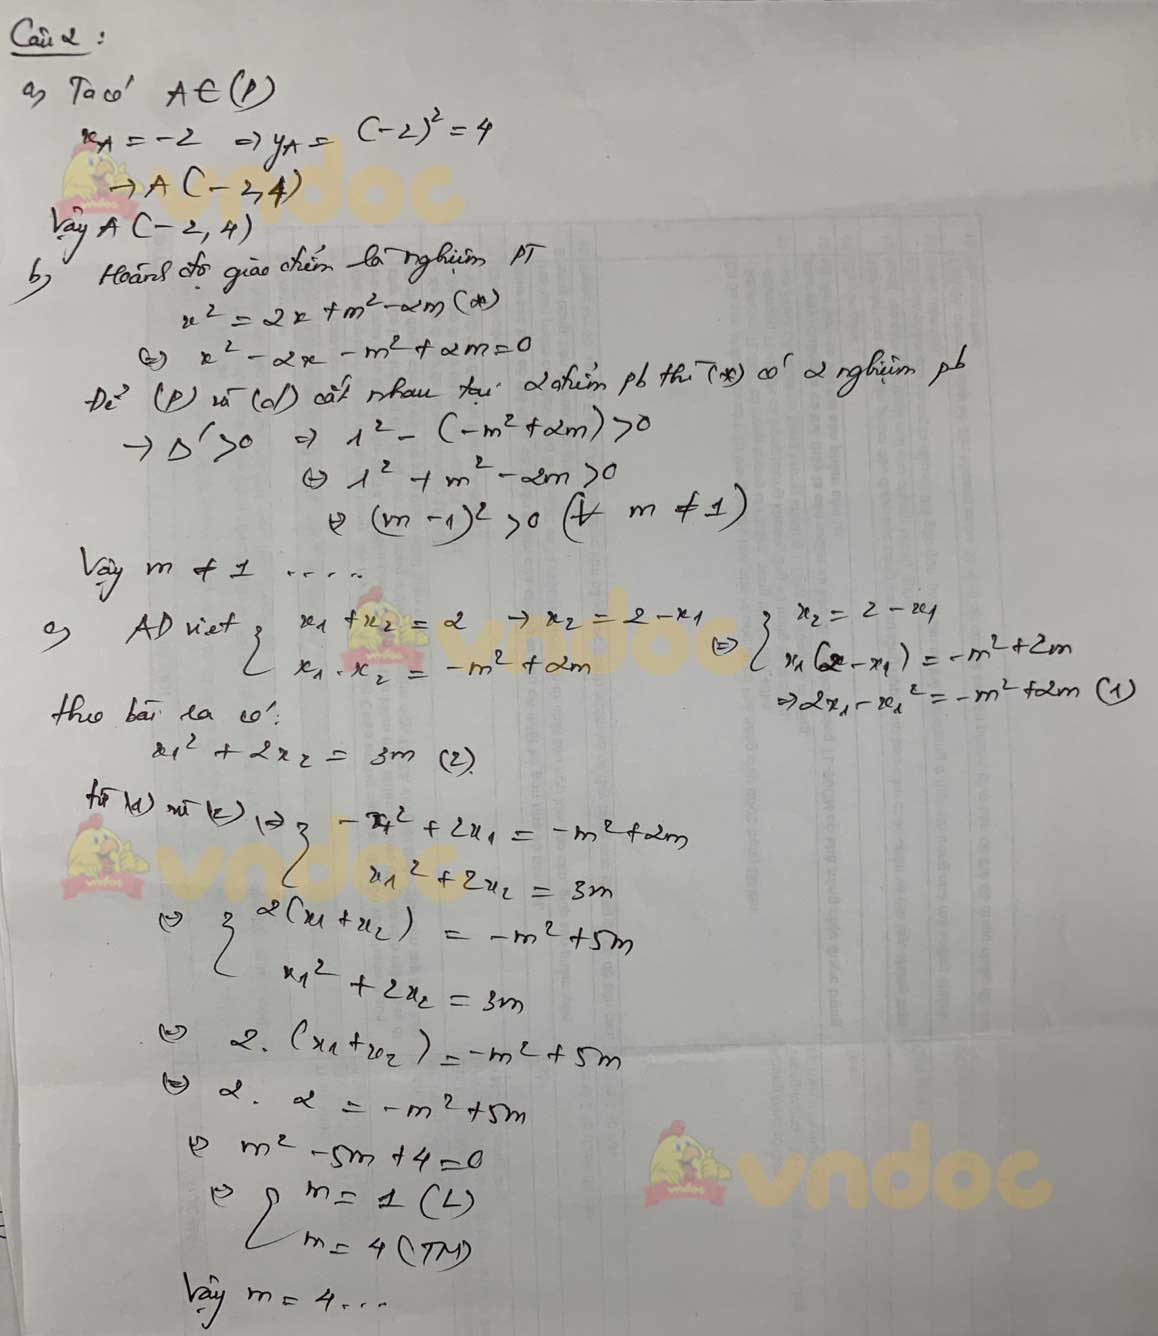 Câu 2:
a, Ta có A ∈ (P)
xA = -2 => yA = (-2)² = 4
→ A (-2, 4)
Vậy A (-2, 4)
b, Hoành độ giao điểm là nghiệm PT
x² = 2x + m² - 2m (*)
<=> x² - 2x - m² + 2m = 0
Để (P) và (d) cắt nhau tại 2 điểm pb thì (*) có 2 nghiệm pb
→ Δ' > 0 => 1² - (-m² + 2m) > 0
<=> 1² + m² - 2m > 0
<=> (m - 1)² > 0 (∀ m ≠ 1)
Vậy m ≠ 1 .....
c, AD viet { x1 + x2 = 2 → x2 = 2 - x1
x1 . x2 = -m² + 2m
<=> { x2 = 2 - x1
x1 (2 - x1) = -m² + 2m
=> 2x1 - x1² = -m² + 2m (1)
theo bài ra có:
x1² + 2x2 = 3m (2)
từ (1) và (2) => { -x1² + 2x1 = -m² + 2m
x1² + 2x2 = 3m
<=> { 2(x1 + x2) = -m² + 5m
x1² + 2x2 = 3m
<=> 2. (x1 + x2) = -m² + 5m
<=> 2. 2 = -m² + 5m
<=> m² - 5m + 4 = 0
<=> [ m = 1 (L)
m = 4 (TM)
Vậy m = 4...
vndoc
vndoc
vndoc
vndoc